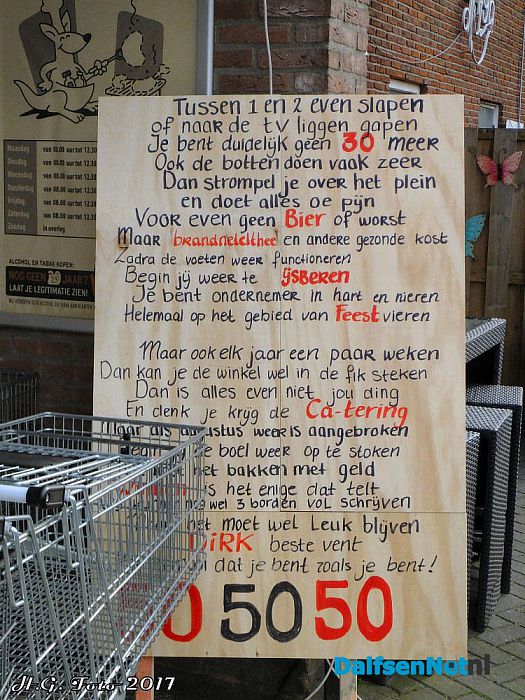 Maandag van 08.00 uur tot 12.30
Dinsdag van 08.00 uur tot 12.30
Woensdag van 08.00 uur tot 12.30
Donderdag van 08.00 uur tot 12.30
Vrijdag van 08.00 uur tot 12.30
Zaterdag van 08.00 uur tot 12.30
Zondag
ALCOHOL EN TABAK KOPEN:
NOG GEEN JAAR?
LAAT JE LEGITIMATIE ZIEN!
Tussen 1 en 2 even slapen
of naar de tv liggen gapen
Je bent duidelijk geen 30 meer
Ook de botten doen vaak zeer
Dan strompel je over het plein
en doet alles oe pijn
Voor even geen Bier of worst
Maar brandnetelthee en andere gezonde kost
Zodra de voeten weer functioneren
Begin jij weer te ijsberen
Je bent ondernemer in hart en nieren
Helemaal op het gebied van Feest vieren
Maar ook elk jaar een paar weken
Dan kan je de winkel wel in de fik steken
Dan is alles even niet jou ding
En denk je krijg de Ca-tering
Maar als augustus weer is aangebroken
je boel weer op te stoken
het bakken met geld
is het enige dat telt
nog wel 3 borden vol schrijven
het moet wel Leuk blijven
DiRK beste vent
dat je bent zoals je bent!
50 50 50
H.G. Foto 2017
DalfsenNet.nl